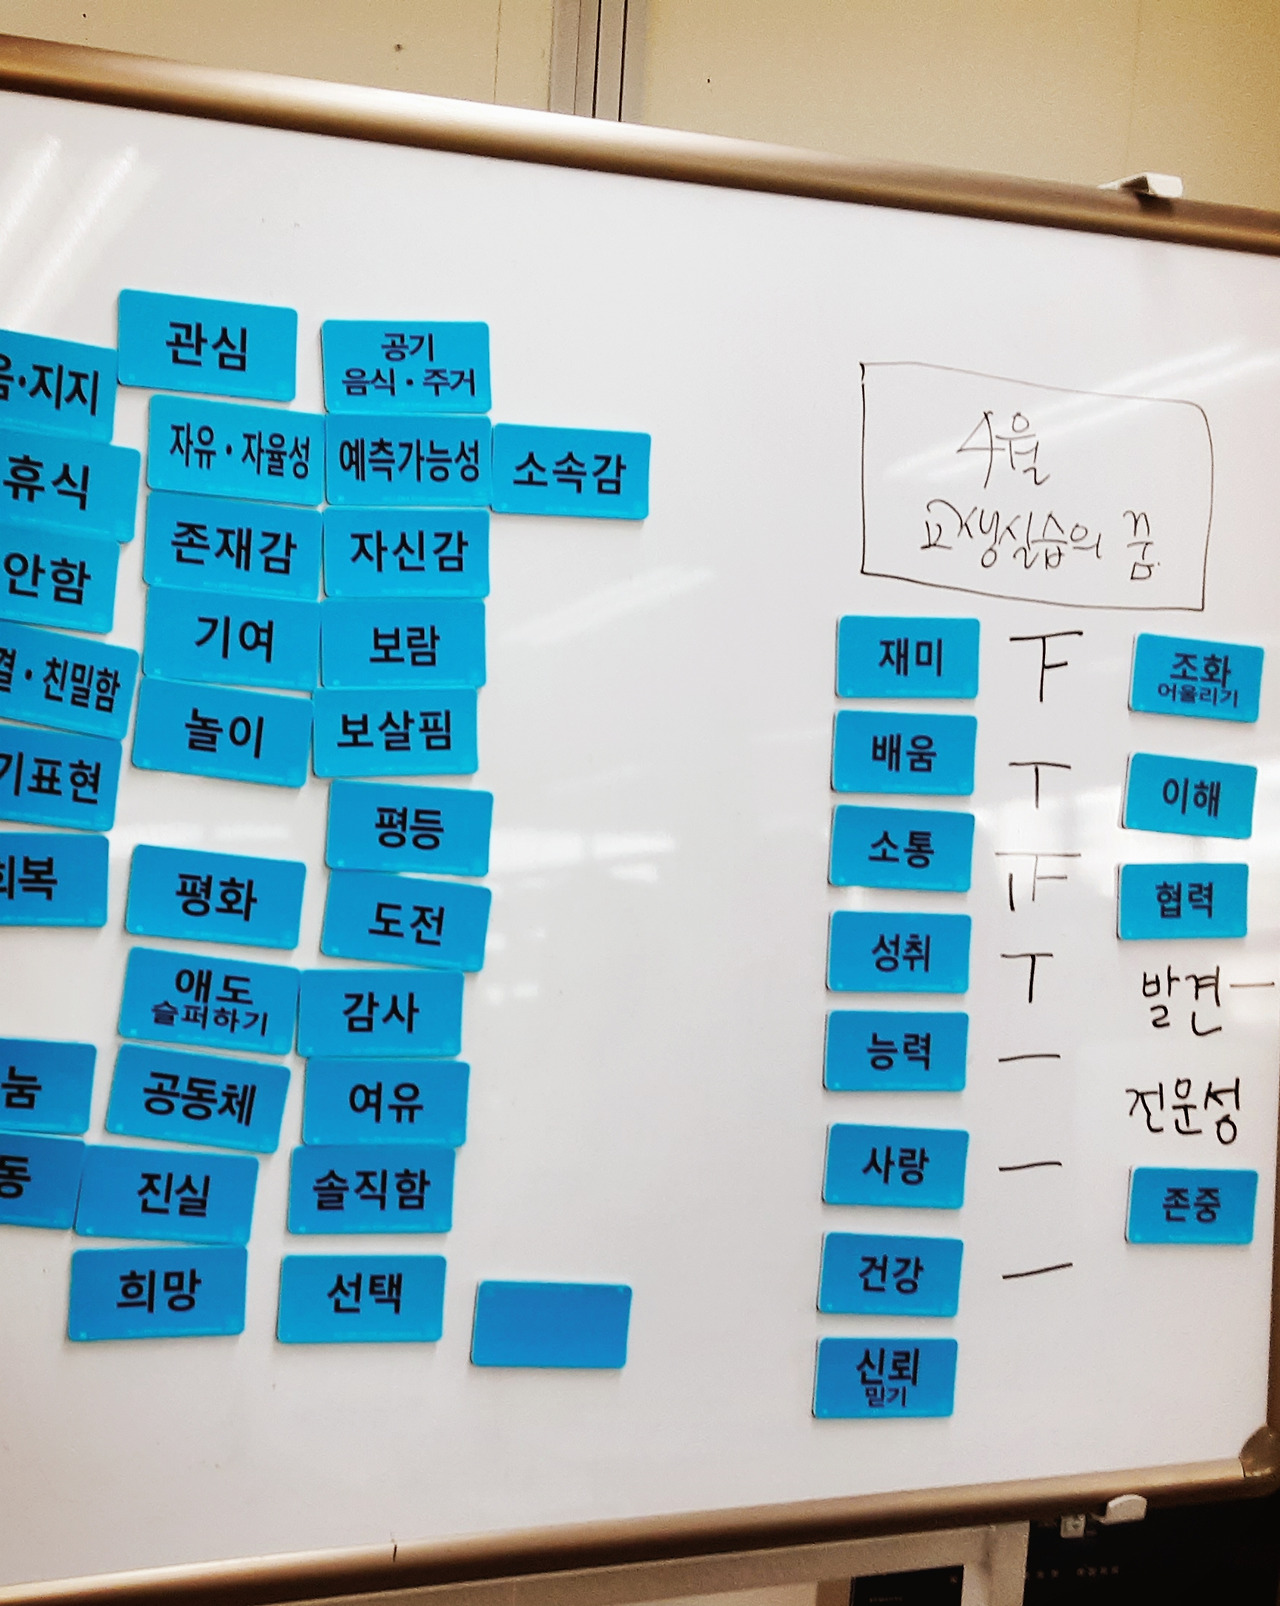 관심
공기
음식·주거
음·지지
자유·자율성
예측가능성
소속감
휴식
존재감
자신감
안함
기여
보람
결·친밀함
놀이
보살핌
기표현
평등
회복
평화
도전
애도
슬퍼하기
감사
눔
공동체
여유
동
진실
솔직함
희망
선택
4월
교생실습의 꿈
재미
배움
소통
성취
능력
사랑
건강
신뢰
믿기
조화
어울리기
이해
협력
발견
전문성
존중